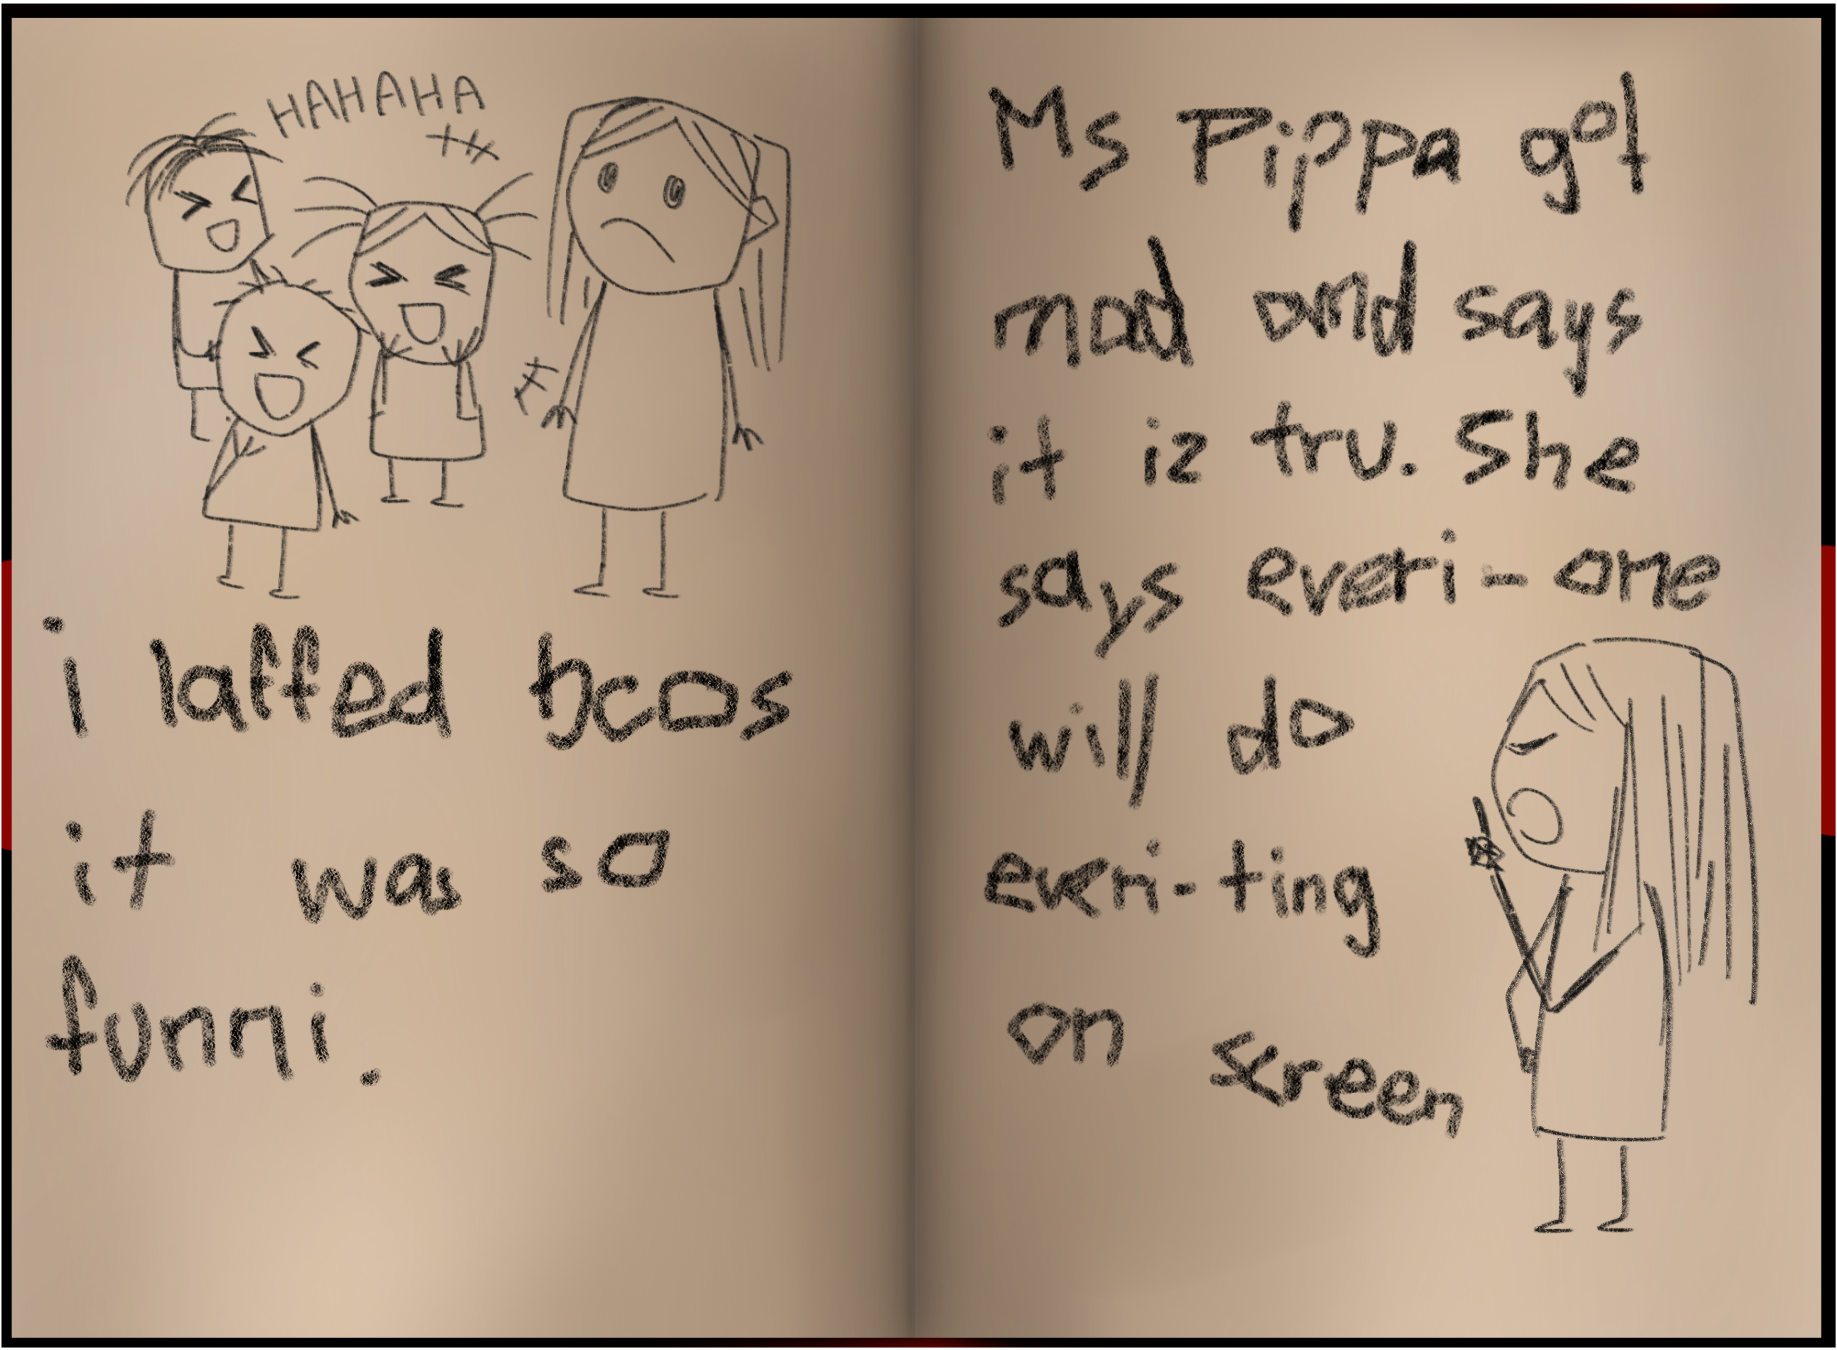 HAHAHA
i laffed bcos
it was so
funni.
Ms Pippa got
mad and says
it iz tru. She
says everi-one
will do
everi-ting
on screen